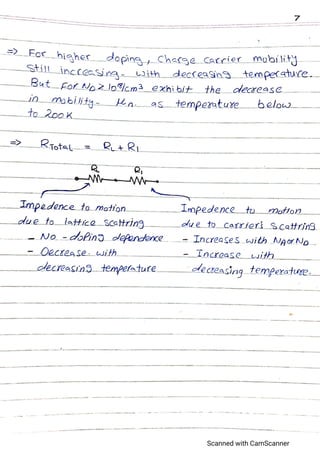 7
=> For higher doping, Charge carrier mobility
still increasing. with decreasing temperature.
But For ND ≥ 10¹⁹/cm³ exhibit the decrease
in mobility. μn. as temperature below
to 200K
=> RTotal = RL + RI
RL RI
Impedence to motion
due to lattice scattring
- No - doping dependence
- Decrease. with
decreasing temperature
Impedence to motion
due to carrier: scattring
- Increases with NA or ND
- Increase with
decreasing temperature.
Scanned with CamScanner